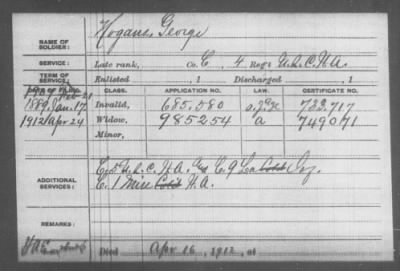 NAME OF SOLDIER: Hogans, George
SERVICE: Late rank, Co. C, 4 Reg't U.S.C.H.A.
TERM OF SERVICE: Enlisted , 1 Discharged , 1
DATE OF FILING. CLASS. APPLICATION NO. LAW. CERTIFICATE NO.
1889 Jan. 17 Invalid, 685.580 722.717
1912 Apr 24 Widow, 985254 a 749071
Minor,
ADDITIONAL SERVICES: C. U.S.C.H.A. C. 9 La Inf.
C. 1 H.A.
REMARKS:
Died Apr 16, 1912, at